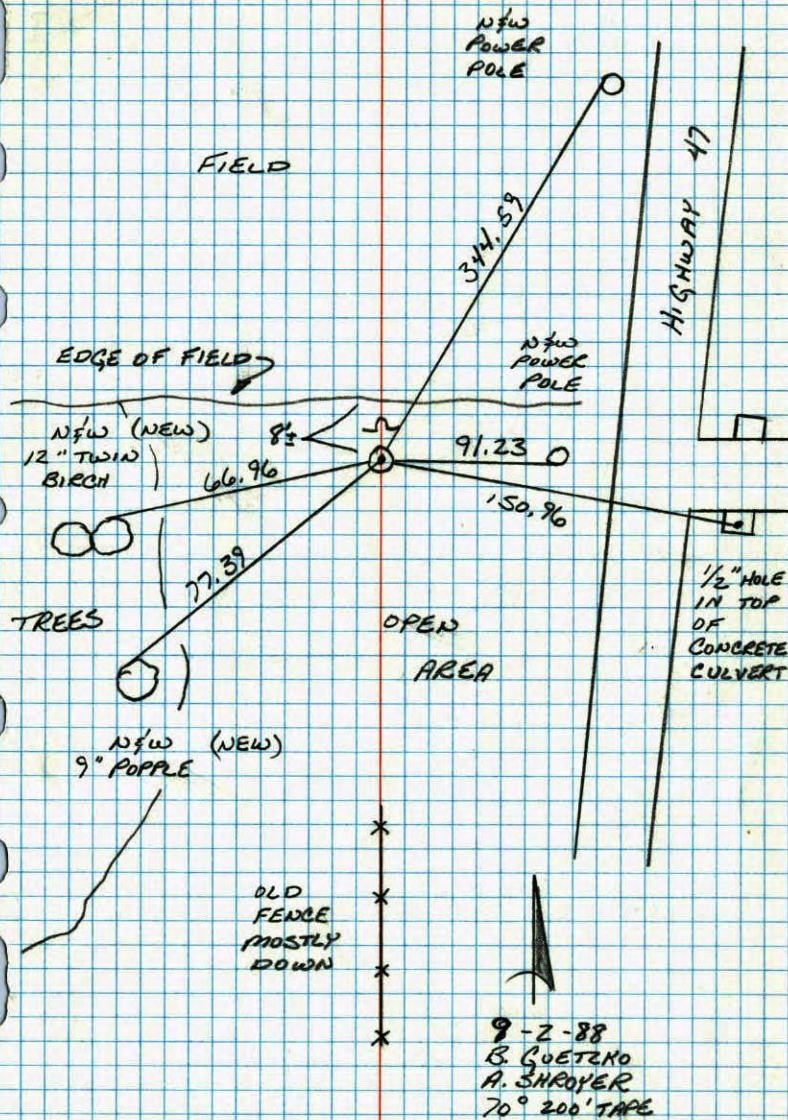 N&W
POWER
POLE
FIELD
HIGHWAY 47
344.59
EDGE OF FIELD
N&W
POWER
POLE
N&W (NEW)
12" TWIN
BIRCH
8'±
91.23
66.96
150.96
77.39
1/2" HOLE
IN TOP
OF
CONCRETE
CULVERT
TREES
OPEN
AREA
N&W (NEW)
9" POPPLE
OLD
FENCE
MOSTLY
DOWN
9-2-88
B. GUETZKO
A. SHROYER
70° 200' TAPE